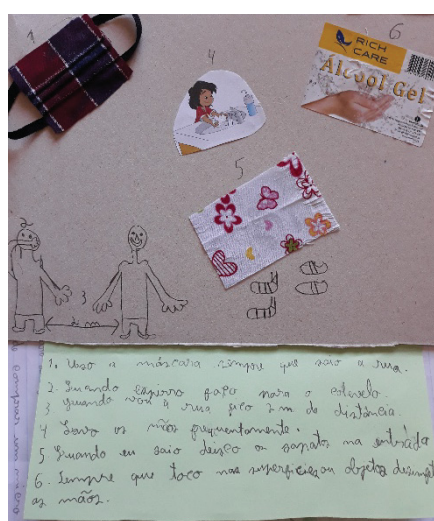 1
4
6
RICH
CARE
Álcool Gel
5
3
2 m
1. Uso a máscara sempre que saio à rua.
2. Quando espirro faço para o cotovelo.
3 Quando vou à rua fico 2 m de distância.
4 Lavo as mãos frequentemente.
5 Quando eu saio deixo os sapatos na entrada
6. Sempre que toco nas superfícies ou objetos desinfeto
as mãos.